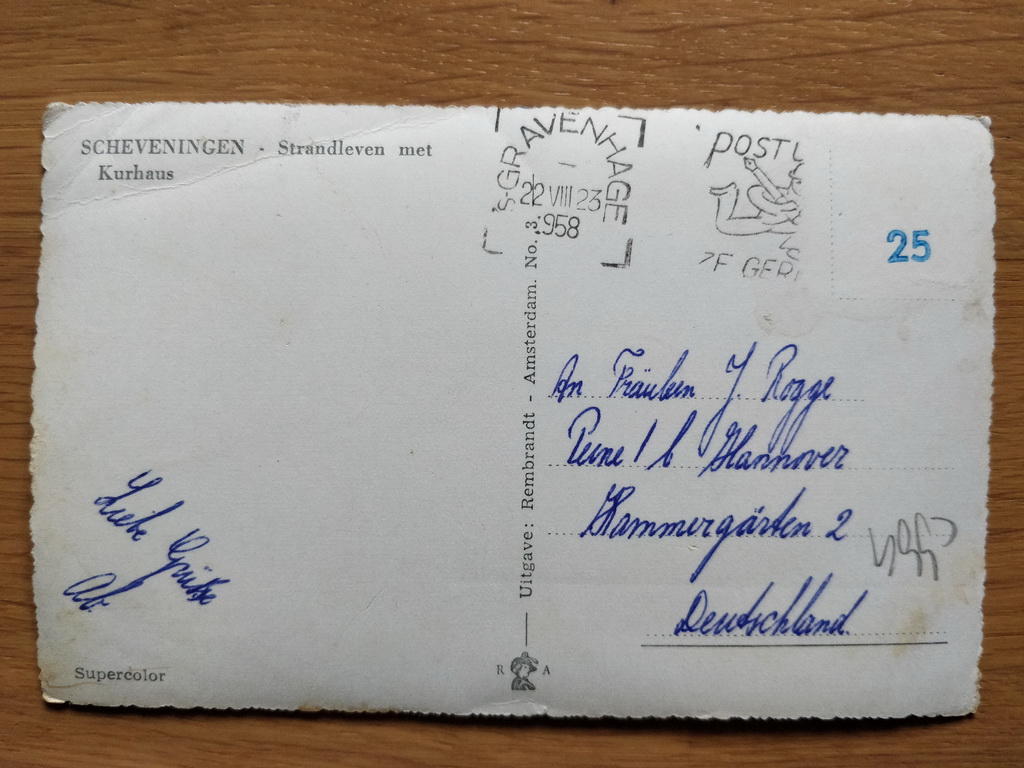 SCHEVENINGEN - Strandleven met
Kurhaus
's-GRAVENHAGE
22 VIII 23
1958
POSTL
ZF GER
25
Uitgave: Rembrandt - Amsterdam. No. 3.
An Fräulein J. Rogge
Peine / b Hannover
Hammergärten 2
Deutschland
Liebe Grüße
Ab.
Supercolor
R A